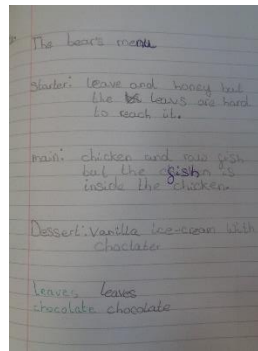 The bears menu
starter: leave and honey but
the leaves are hard
to reach it.
main: chicken and raw fish
but the fish is
inside the chicken.
Dessert: vanilla ice-cream with
choclate
leaves leaves
chocolate chocolate